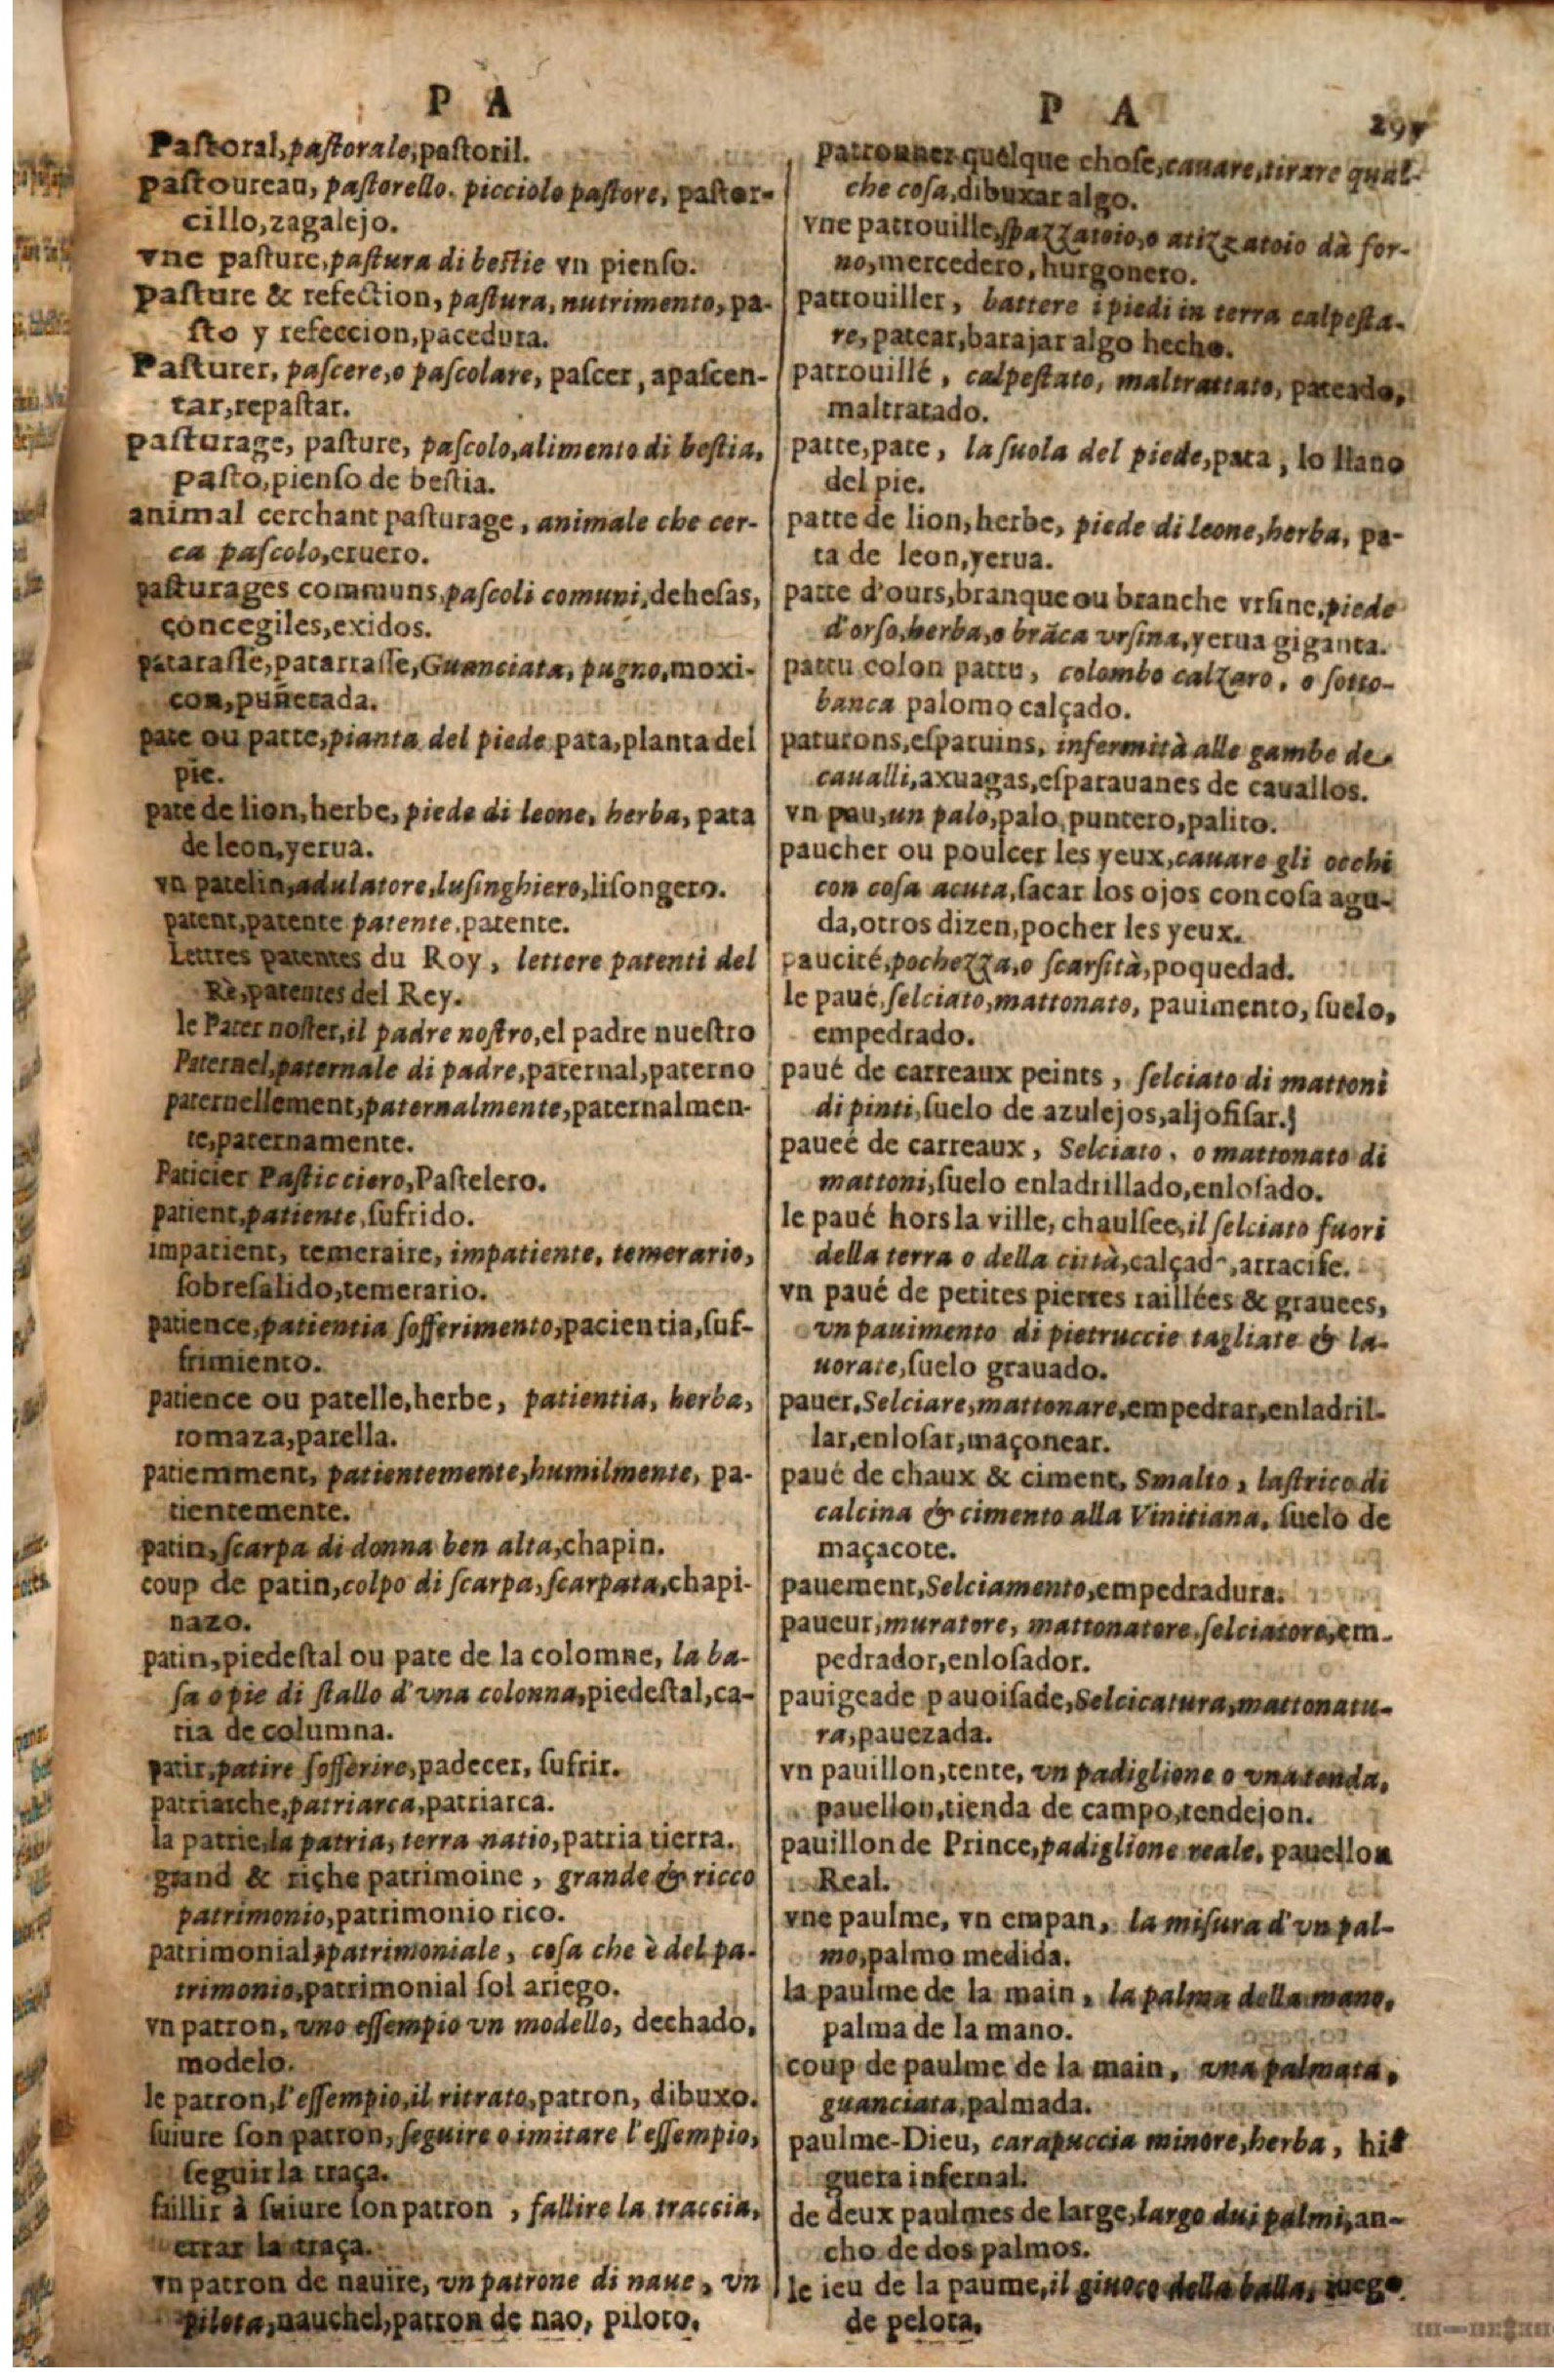 P A
Paſtoral, paſtorale, paſtoril.
paſtoureau, paſtorello. picciolo paſtore, paſtor-
cillo, zagalejo.
vne paſture, paſtura di beſtie vn pienſo.
paſture & refection, paſtura, nutrimento, pa-
ſto y refeccion, pacedura.
Paſturer, paſcere, o paſcolare, paſcer, apaſcen-
tar, repaſtar.
paſturage, paſture, paſcolo, alimento di beſtia,
paſto, pienſo de beſtia.
animal cerchant paſturage, animale che cer-
ca paſcolo, eruero.
paſturages communs, paſcoli comuni, deheſas,
concegiles, exidos.
pataraſſe, patarraſſe, Guanciata, pugno, moxi-
con, puñetada.
pate ou patte, pianta del piede pata, planta del
pie.
pate de lion, herbe, piede di leone, herba, pata
de leon, yerua.
vn patelin, adulatore, luſinghiero, liſongero.
patent, patente patente, patente.
Lettres patentes du Roy, lettere patenti del
Rè, patentes del Rey.
le Pater noſter, il padre noſtro, el padre nueſtro
Paternel, paternale di padre, paternal, paterno
paternellement, paternalmente, paternalmen-
te, paternamente.
Paticier Paſticciero, Paſtelero.
patient, patiente, ſufrido.
impatient, temeraire, impatiente, temerario,
ſobreſalido, temerario.
patience, patientia ſofferimento, pacientia, ſuf-
frimiento.
patience ou patelle, herbe, patientia, herba,
romaza, parella.
patiemment, patientemente, humilmente, pa-
tientemente.
patin, ſcarpa di donna ben alta, chapin.
coup de patin, colpo di ſcarpa, ſcarpata, chapi-
nazo.
patin, piedeſtal ou pate de la colomne, la ba-
ſa o pie di ſtallo d'vna colonna, piedeſtal, ca-
ria de columna.
patir, patire ſofferire, padecer, ſufrir.
patriarche, patriarca, patriarca.
la patrie, la patria, terra natio, patria tierra.
grand & riche patrimoine, grande & ricco
patrimonio, patrimonio rico.
patrimonial, patrimoniale, coſa che è del pa-
trimonio, patrimonial ſol ariego.
vn patron, vno eſſempio vn modello, dechado,
modelo.
le patron, l'eſſempio, il ritrato, patron, dibuxo.
ſuiure ſon patron, ſeguire o imitare l'eſſempio,
ſeguir la traça.
faillir à ſuiure ſon patron, fallire la traccia,
errar la traça.
vn patron de nauire, vn patrone di naue, vn
pilota, nauchel, patron de nao, piloto.
P A
patronner quelque choſe, cauare, tirare qual-
che coſa, dibuxar algo.
vne patrouille, ſpazzatoio, o atizzatoio dà for-
no, mercedero, hurgonero.
patrouiller, battere i piedi in terra calpeſta-
re, patear, barajar algo hecho.
patrouillé, calpeſtato, maltrattato, pateado,
maltratado.
patte, pate, la ſuola del piede, pata, lo llano
del pie.
patte de lion, herbe, piede di leone, herba, pa-
ta de leon, yerua.
patte d'ours, branque ou branche vrſine, piede
d'orſo, herba, o brāca vrſina, yerua giganta.
pattu colon pattu, colombo calzaro, o ſotto-
banca palomo calçado.
paturons, eſparuins, infermità alle gambe de
caualli, axuagas, eſparauanes de cauallos.
vn pau, un palo, palo, puntero, palito.
paucher ou poulcer les yeux, cauare gli occhi
con coſa acuta, ſacar los ojos con coſa agu-
da, otros dizen, pocher les yeux.
paucité, pochezza, o ſcarſità, poquedad.
le paué, ſelciato, mattonato, pauimento, ſuelo,
empedrado.
paué de carreaux peints, ſelciato di mattoni
di pinti, ſuelo de azulejos, aljofiſar.
paueé de carreaux, Selciato, o mattonato di
mattoni, ſuelo enladrillado, enloſado.
le paué hors la ville, chaulſee, il ſelciato fuori
della terra o della città, calçad, arracife.
vn paué de petites pierres taillées & grauees,
vn pauimento di pietruccie tagliate & la-
uorate, ſuelo grauado.
pauer, Selciare, mattonare, empedrar, enladril-
lar, enloſar, maçonear.
paué de chaux & ciment, Smalto, laſtrico di
calcina & cimento alla Vinitiana, ſuelo de
maçacote.
pauement, Selciamento, empedradura.
paueur, muratore, mattonatore, ſelciatore, em-
pedrador, enloſador.
pauigeade pauoiſade, Selcicatura, mattonatu-
ra, pauezada.
vn pauillon, tente, vn padiglione o vna tenda,
pauellon, tienda de campo, tendejon.
pauillon de Prince, padiglione reale, pauellon
Real.
vne paulme, vn empan, la miſura d'vn pal-
mo, palmo medida.
la paulme de la main, la palma della mano,
palma de la mano.
coup de paulme de la main, vna palmata,
guanciata, palmada.
paulme-Dieu, carapuccia minore, herba, hi
guera infernal.
de deux paulmes de large, largo dui palmi, an-
cho de dos palmos.
le ieu de la paume, il giuoco della balla, iuego
de pelota.